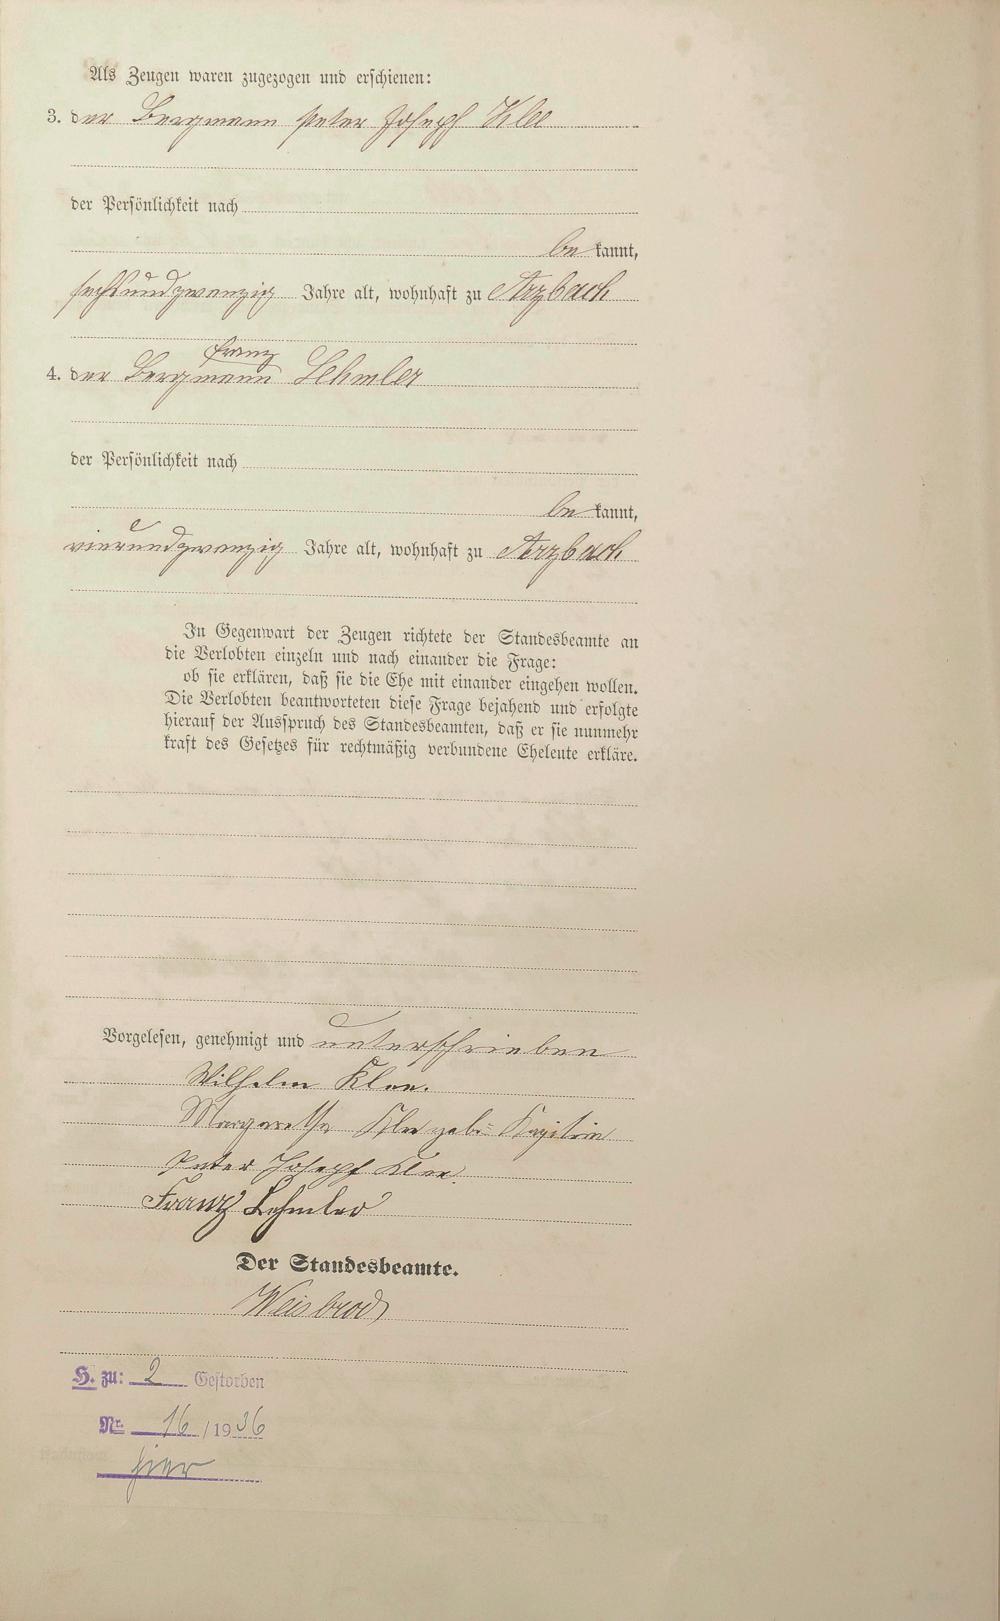 Als Zeugen waren zugezogen und erschienen:
3. der Bergmann Peter Joseph Klee
der Persönlichkeit nach
be kannt,
sechsundzwanzig Jahre alt, wohnhaft zu Arzbach
Franz
4. der Bergmann Lehmler
der Persönlichkeit nach
be kannt,
vierundzwanzig Jahre alt, wohnhaft zu Arzbach
In Gegenwart der Zeugen richtete der Standesbeamte an
die Verlobten einzeln und nach einander die Frage:
ob sie erklären, daß sie die Ehe mit einander eingehen wollen.
Die Verlobten beantworteten diese Frage bejahend und erfolgte
hierauf der Ausspruch des Standesbeamten, daß er sie nunmehr
kraft des Gesetzes für rechtmäßig verbundene Eheleute erkläre.
Vorgelesen, genehmigt und unterschrieben
Wilhelm Klee.
Margaretha Klee geb: Kapitain
Peter Joseph Klee.
Franz Lehmler
Der Standesbeamte.
Weisbrod
H. zu: 2 Gestorben
Nr. 16 / 1936
hier